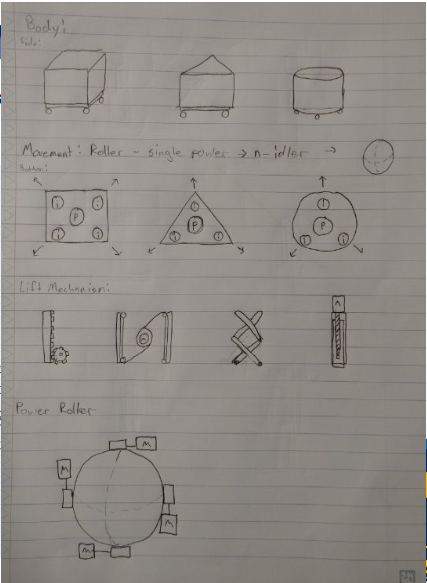 Body:
Side:
Movement: Roller - single power → n-idler →
Bottom:
i i
P
i i
i
P
i i
i
P
i i
Lift Mechanism:
M
Power Roller
M
M
M
M